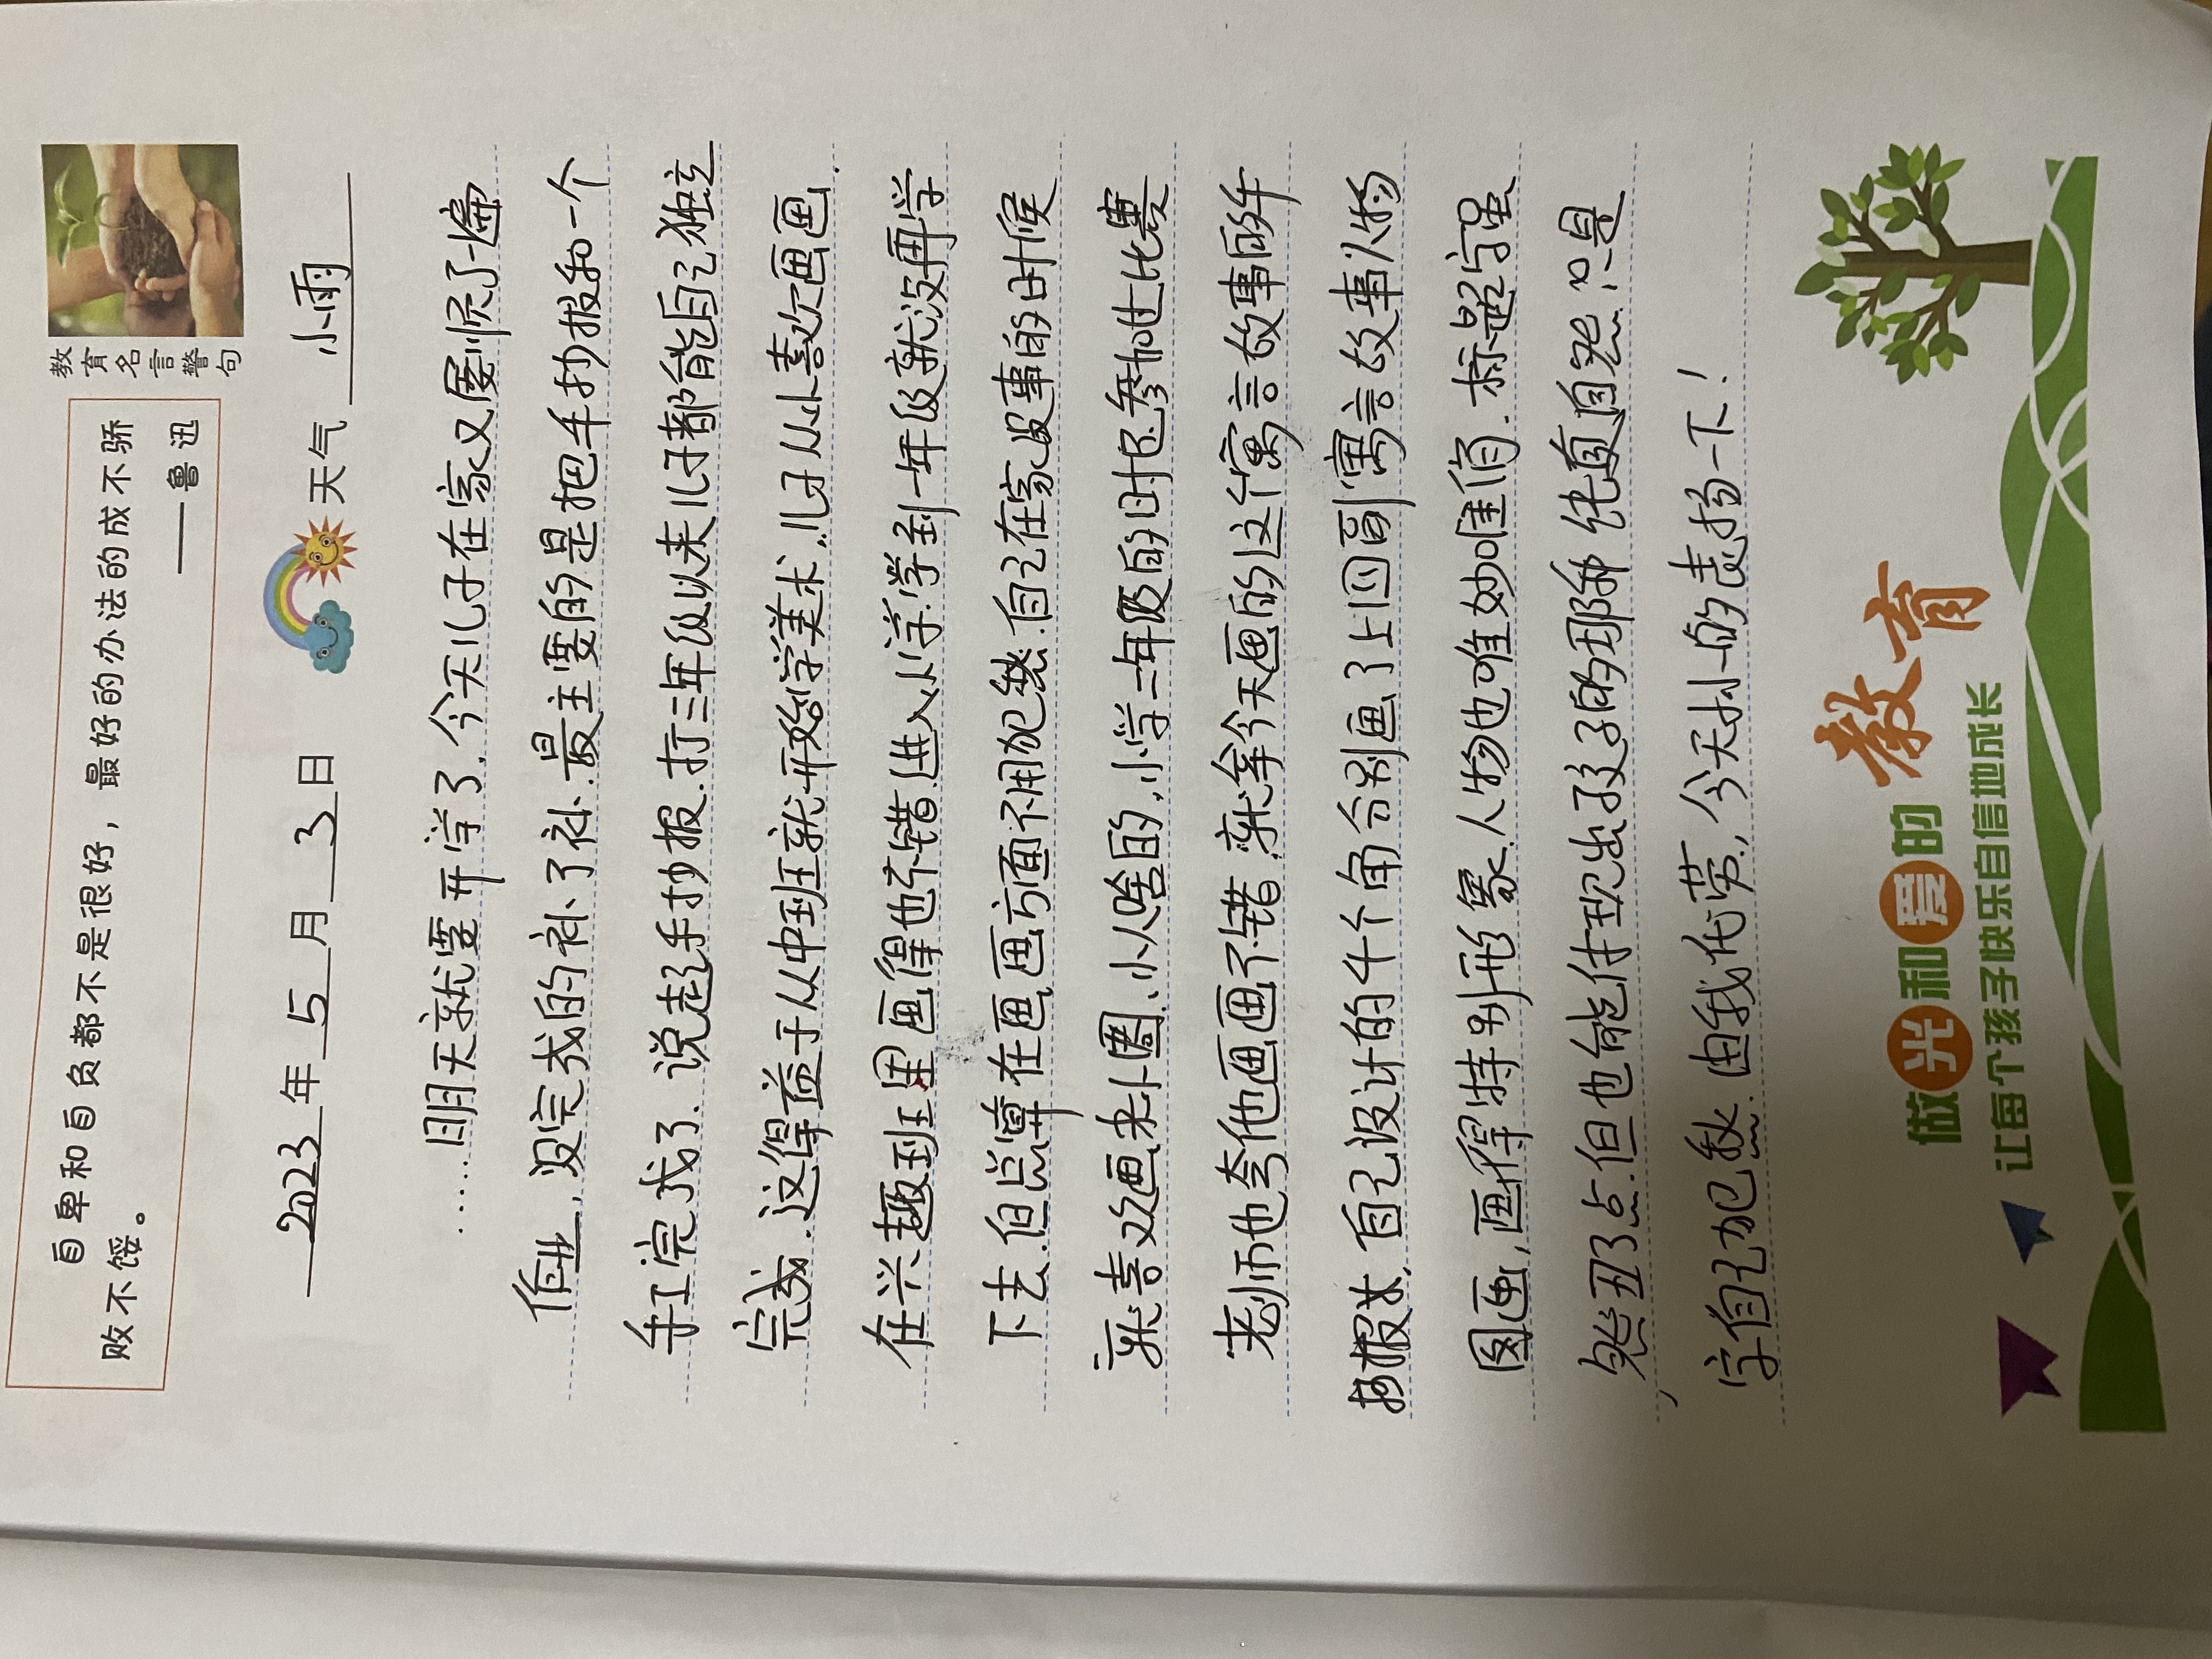 自卑和自负都不是很好，最好的办法的成不骄
败不馁。
——鲁迅
教育名言警句
2023年5月3日 天气 小雨
……明天就要开学了.今天儿子在家又屡顺了一遍
作业,没完成的补了补.最主要的是把手抄报和一个
手工完成了.说起手抄报.打三年级以来儿子都能自己独立
完成.这得益于从中班就开始学美术.儿子从小喜欢画画.
在兴趣班里画得也不错.进入小学.学到一年级就没再学
下去.但总算在画画方面不用犯愁.自己在家没事的时候
就喜欢画来小圈.小人啥的.小学二年级的时还参加过比赛
老师也夸他画画不错.就拿今天画的这个寓言故事的手
抄报.自己设计的.4个角分别画了上四副寓言故事人物
图画,画得特别形象.人物也唯妙唯俏.标题字虽
然丑了点.但也能体现出孩子的那种纯真自然.只是
字自己犯愁.由我代劳,今天小小的表扬一下!
做光和爱的教育
让每个孩子快乐自信地成长